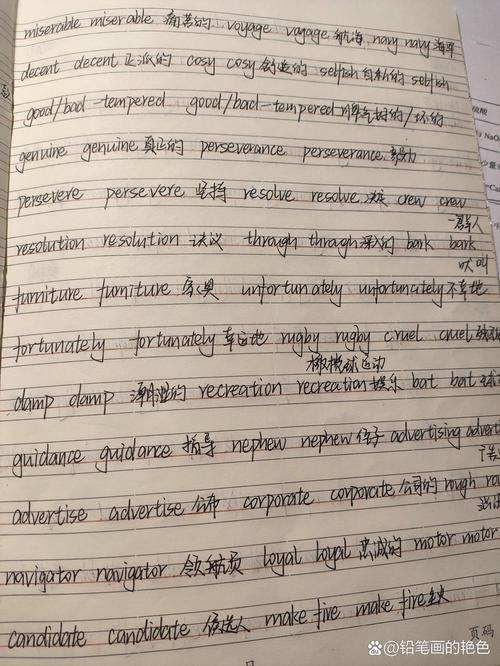 miserable miserable 痛苦的 voyage voyage 航海 navy navy 海军
decent decent 正派的 cosy cosy 创造的 selfish 自私的 selfish
good/bad-tempered good/bad-tempered 脾气好的/坏的
genuine genuine 真正的 perseverance perseverance 毅力
persevere persevere 坚持 resolve resolve 决定 crew crew
一群人
resolution resolution 决议 through through 深入的 bark bark
吠叫
furniture furniture 家具 unfortunately unfortunately 不幸地
fortunately fortunately 幸运地 rugby rugby cruel cruel
橄榄球运动
damp damp 潮湿的 recreation recreation 娱乐 bat bat
guidance guidance 指导 nephew nephew 侄子 advertising
advertise advertise 公布 corporate corporate 公司的 rough
navigator navigator 领航员 loyal loyal 忠诚的 motor motor
candidate candidate 候选人 make fire make fire 生火
页码
@铅笔画的艳色